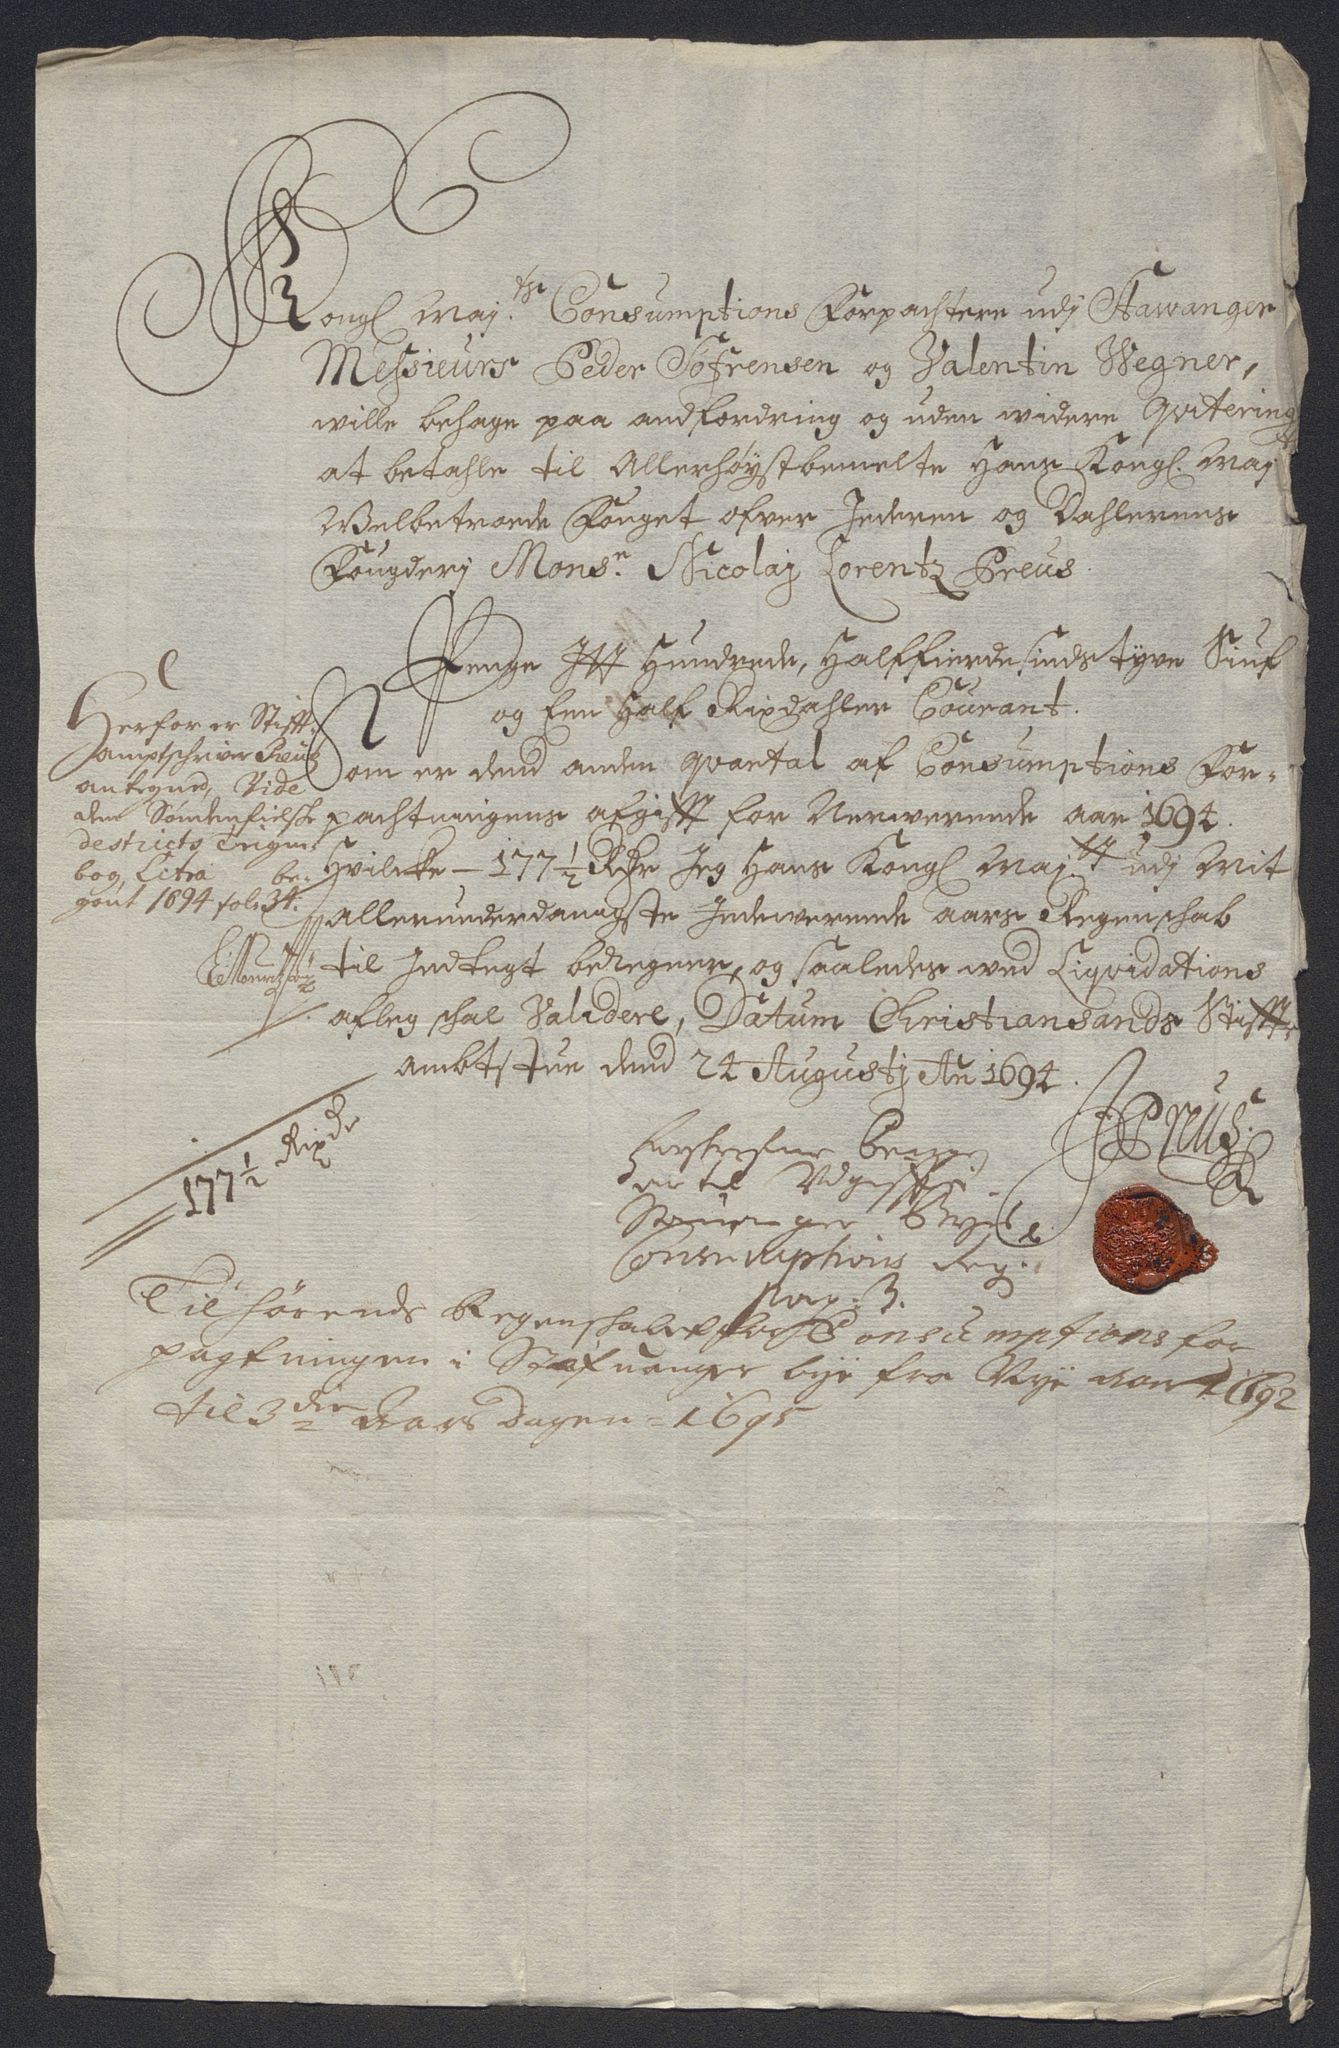 Kongl Maj:ts Consumptions Forpachtere udj Stawanger
Messieurs Peder Søfrensen og Valentin Wegner,
wille behage paa andfordring og uden widere qvitering
at betahle til Allerhøystbemelte Hans Kongl. Maj
Welbetroede Fouget ofver Jederen og Dahlerens
Fougderj Monsr. Nicolaj Lorentz Preus.
Penge Itt Hundrede, Halffierdesindstyve Siuf
og Een Half Rixdahler Courant.
Som er dend anden qvartal af Consumptions For-
pachtningens afgifft for Nerwerende aar 1694.
Hvilcke - 177 1/2 Rdr Jeg Hans Kongl Maj:tt udj Mit
allerunderdanigste Indewerende aars Regenschab
til Indtegt beregner, og saaledes wed Liqvidations
afleg schal Validere, Datum Christiansands Stiffts
ambtstue dend 24 Augustj An 1694.
JPreus.
Herfor er Stifft-
amptschriver Preus
antegned, Vide
den Søndenfielske
destricts
bog Litra be-
gønt 1694 fol: 34:
177 1/2 Rixdr
forskrefne Penge
er til Udgifft i
Stawanger Byes
Consumptions Reg:
pag: 3.
Tilhørends Regenschabet for Consumptions for
pagtningen i Stafuanger bye fra Nye aar 1692
til 3die Aars dagen 1695